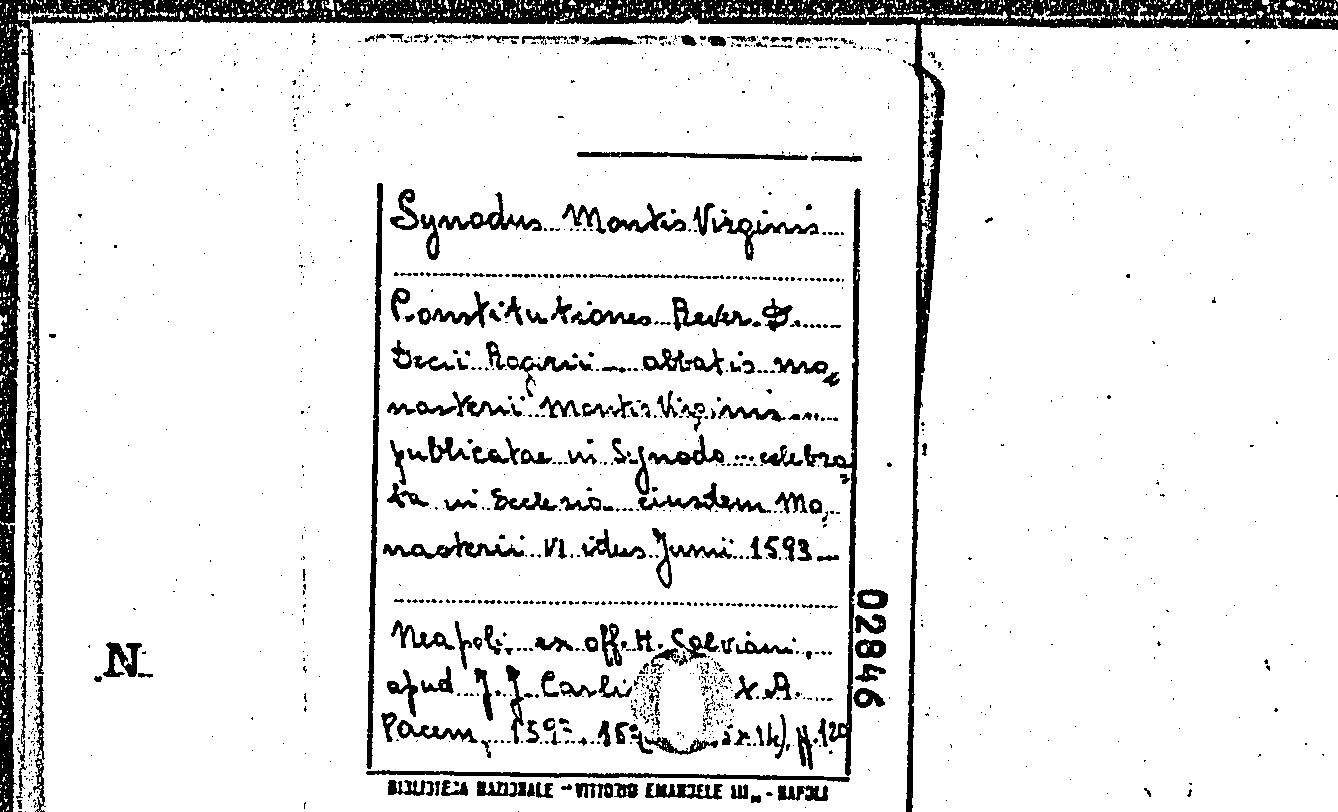 Synodus Montis Virginis
Constitutiones Rever. D.
Decii Rogerii abbatis mo=
nasterii Montis Virginis
publicatae in Synodo celebra=
ta in Ecclesia eiusdem Mo=
nasterii VI idus Junii 1593
Neapoli, ex off. H. Salviani,
apud J. J. Carli x A.
Pacem, 159 , 16° 5x14), pp. 120
02846
.N.
BIBLIOTECA NAZIONALE - VITTORIO EMANUELE III - NAPOLI